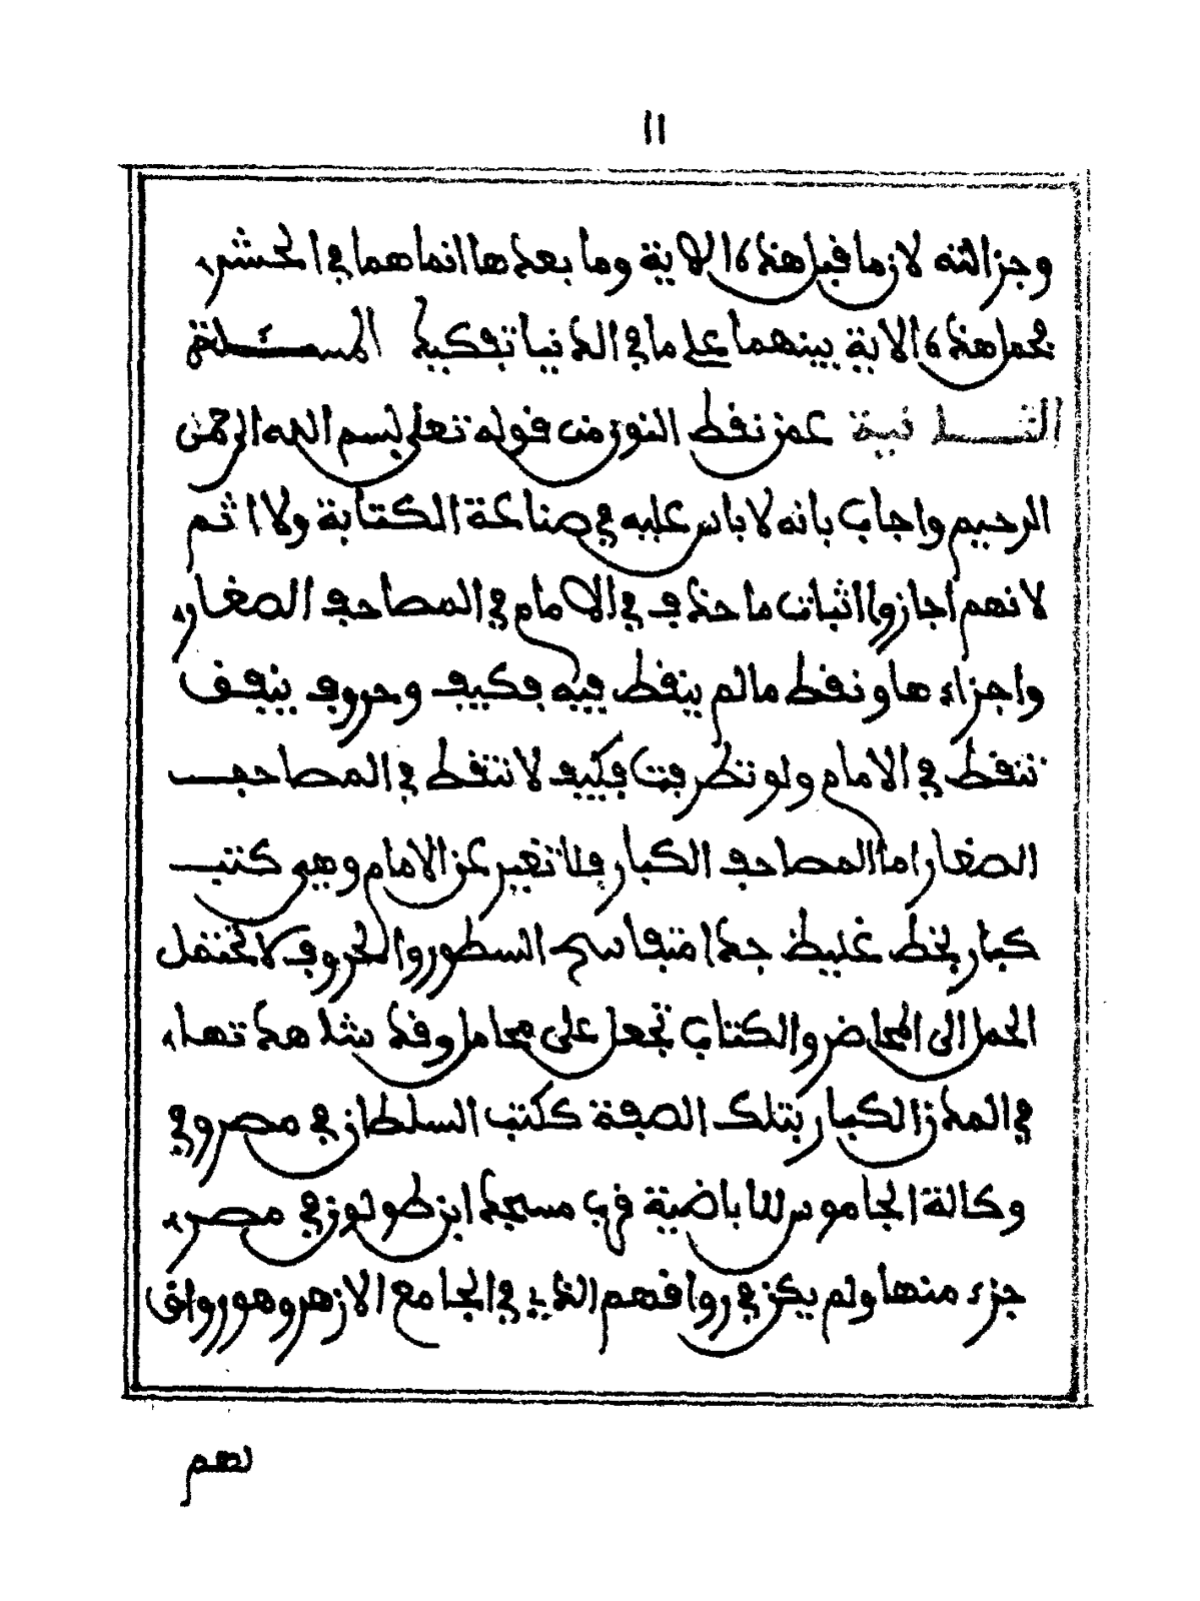 ١١
وجزالته لان ما قبل هذه الاية وما بعدها انما هما في الحشر
بحمل هذه الاية بينهما على ما في الدنيا تفكيك المسئلة
الثانية عن نقط النون من قوله تعلى بسم الله الرحمن
الرحيم واجاب بانه لا باس عليه في صناعة الكتابة ولا اثم
لانهم اجازوا اثبات ما حذف في الامام في المصاحف الصغار
واجزاءها ونقط ما لم ينقط فيه فكيف وحروف ينيقف
تنقط في الامام ولو تطرفت فكيف لا تنقط في المصاحف
الصغار اما المصاحف الكبار فلا تغير عن الامام وهي كتب
كبار بخط غليظ جدا متفاسح السطور والحروف لا تحتمل
الحمل الى المحاضر والكتاب تجعل على محامل وقد شاهدتها
في المدن الكبار بتلك الصفة ككتب السلطان في مصر وفي
وكالة الجاموس للاباضية قرب مسجد ابن طولون في مصر
جزء منها ولم يكن في رواقهم الذي في الجامع الازهر وهو رواق
لهم